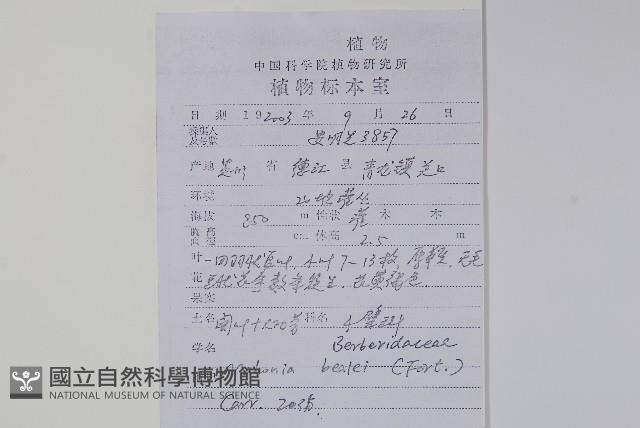 植物
中国科学院植物研究所
植物标本室
日期 19 2003 年 9 月 26 日
采集人及号数 3857
产地 贵州 省 德江 县 青龙镇
环境 山地灌丛
海拔 850 m 性状 灌 木
胸高直径 cm 体高 2.5 m
叶 一回羽状复叶，小叶7-13枚，厚革质，
花 花黄褐色.
果实
土名 阔叶十大功劳 科名 小檗科
学名 Berberidaceae
Mahonia bealei (Fort.)
Carr.
國立自然科學博物館
NATIONAL MUSEUM OF NATURAL SCIENCE